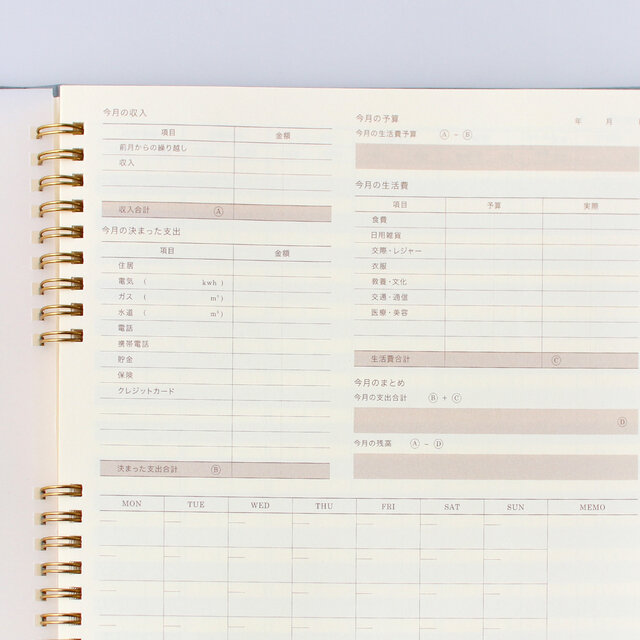 今月の収入
項目 金額
前月からの繰り越し
収入
収入合計 Ⓐ
今月の決まった支出
項目 金額
住居
電気 ( kwh )
ガス ( m³)
水道 ( m³)
電話
携帯電話
貯金
保険
クレジットカード
決まった支出合計 Ⓑ
今月の予算 年 月
今月の生活費予算 Ⓐ − Ⓑ
今月の生活費
項目 予算 実際
食費
日用雑貨
交際・レジャー
衣服
教養・文化
交通・通信
医療・美容
生活費合計 Ⓒ
今月のまとめ
今月の支出合計 Ⓑ + Ⓒ
Ⓓ
今月の残高 Ⓐ − Ⓓ
MON TUE WED THU FRI SAT SUN MEMO